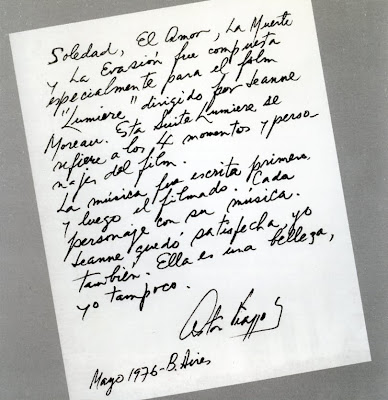 Soledad, El Amor, La Muerte
y La Evasión fue compuesta
especialmente para el film
"Lumiere" dirigido por Jeanne
Moreau. Esta Suite Lumiere se
refiere a los 4 momentos y perso-
najes del film.
La música fue escrita primero,
y luego el filmado. Cada
personaje con su música.
Jeanne quedó satisfecha, yo
también. Ella es una belleza,
yo tampoco.
Astor Piazzolla
Mayo 1976-B. Aires